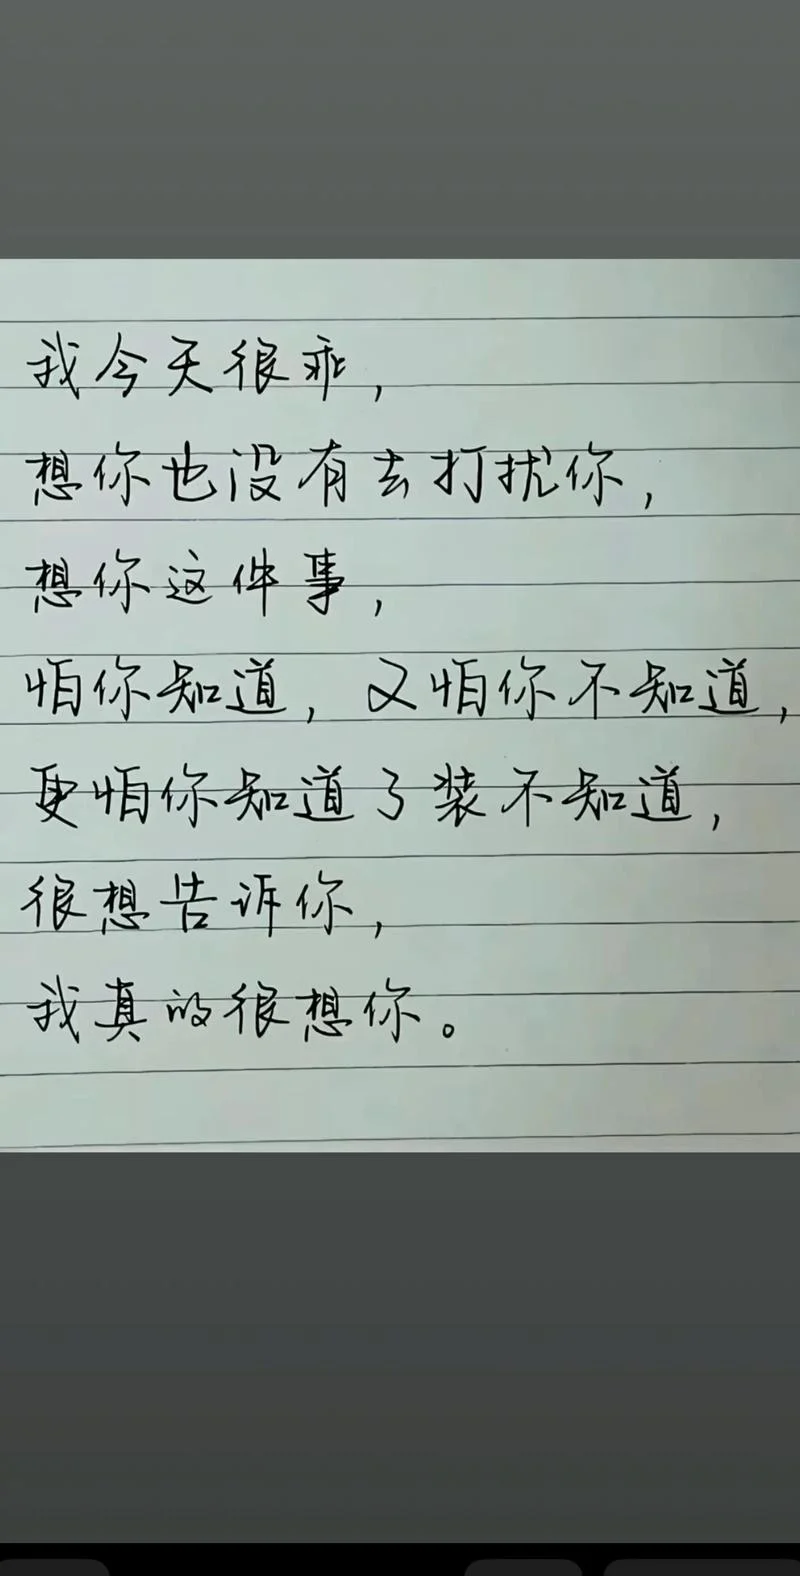 我今天很乖，
想你也没有去打扰你，
想你这件事，
怕你知道，又怕你不知道，
更怕你知道了装不知道，
很想告诉你，
我真的很想你。